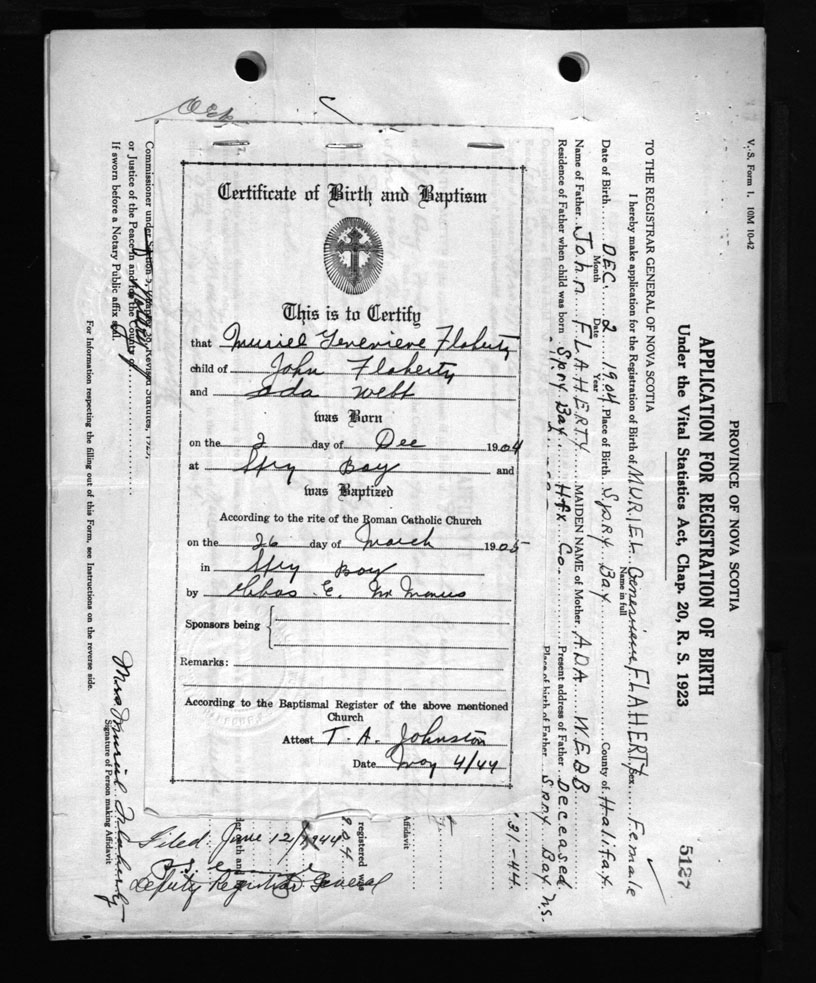 V. S. Form 1. 10M 10-42
PROVINCE OF NOVA SCOTIA
APPLICATION FOR REGISTRATION OF BIRTH
Under the Vital Statistics Act, Chap. 20, R. S. 1923
5127
TO THE REGISTRAR GENERAL OF NOVA SCOTIA
I hereby make application for the Registration of Birth of MURIEL Genevieve FLAHERTY Sex Female
Name in full
Date of Birth DEC. 2 1904 Place of Birth Spry Bay County of Halifax
Month Date Year
Name of Father John FLAHERTY MAIDEN NAME of Mother ADA WEBB Present address of Father Deceased
Residence of Father when child was born Spry Bay Hfx Co. Place of birth of Father Spry Bay N.S.
31-44
Affidavit
registered was
Certificate of Birth and Baptism
This is to Certify
that Muriel Genevieve Flaherty
child of John Flaherty
and Ada Webb
was Born
on the 2 day of Dec 1904
at Spry Bay and
was Baptized
According to the rite of the Roman Catholic Church
on the 26 day of March 1905
in Spry Bay
by Chas. E. McManus
Sponsors being
Remarks:
According to the Baptismal Register of the above mentioned
Church
Attest T. A. Johnston
Date May 4/44
Filed June 12/1944
Deputy Registrar General
Commissioner under Section Revised Statutes, 1923,
or Justice of the Peace in and for the County of
If sworn before a Notary Public affix seal.
For Information respecting the filling out of this Form, see Instructions on the reverse side.
Mrs Muriel Flaherty
Signature of Person making Affidavit